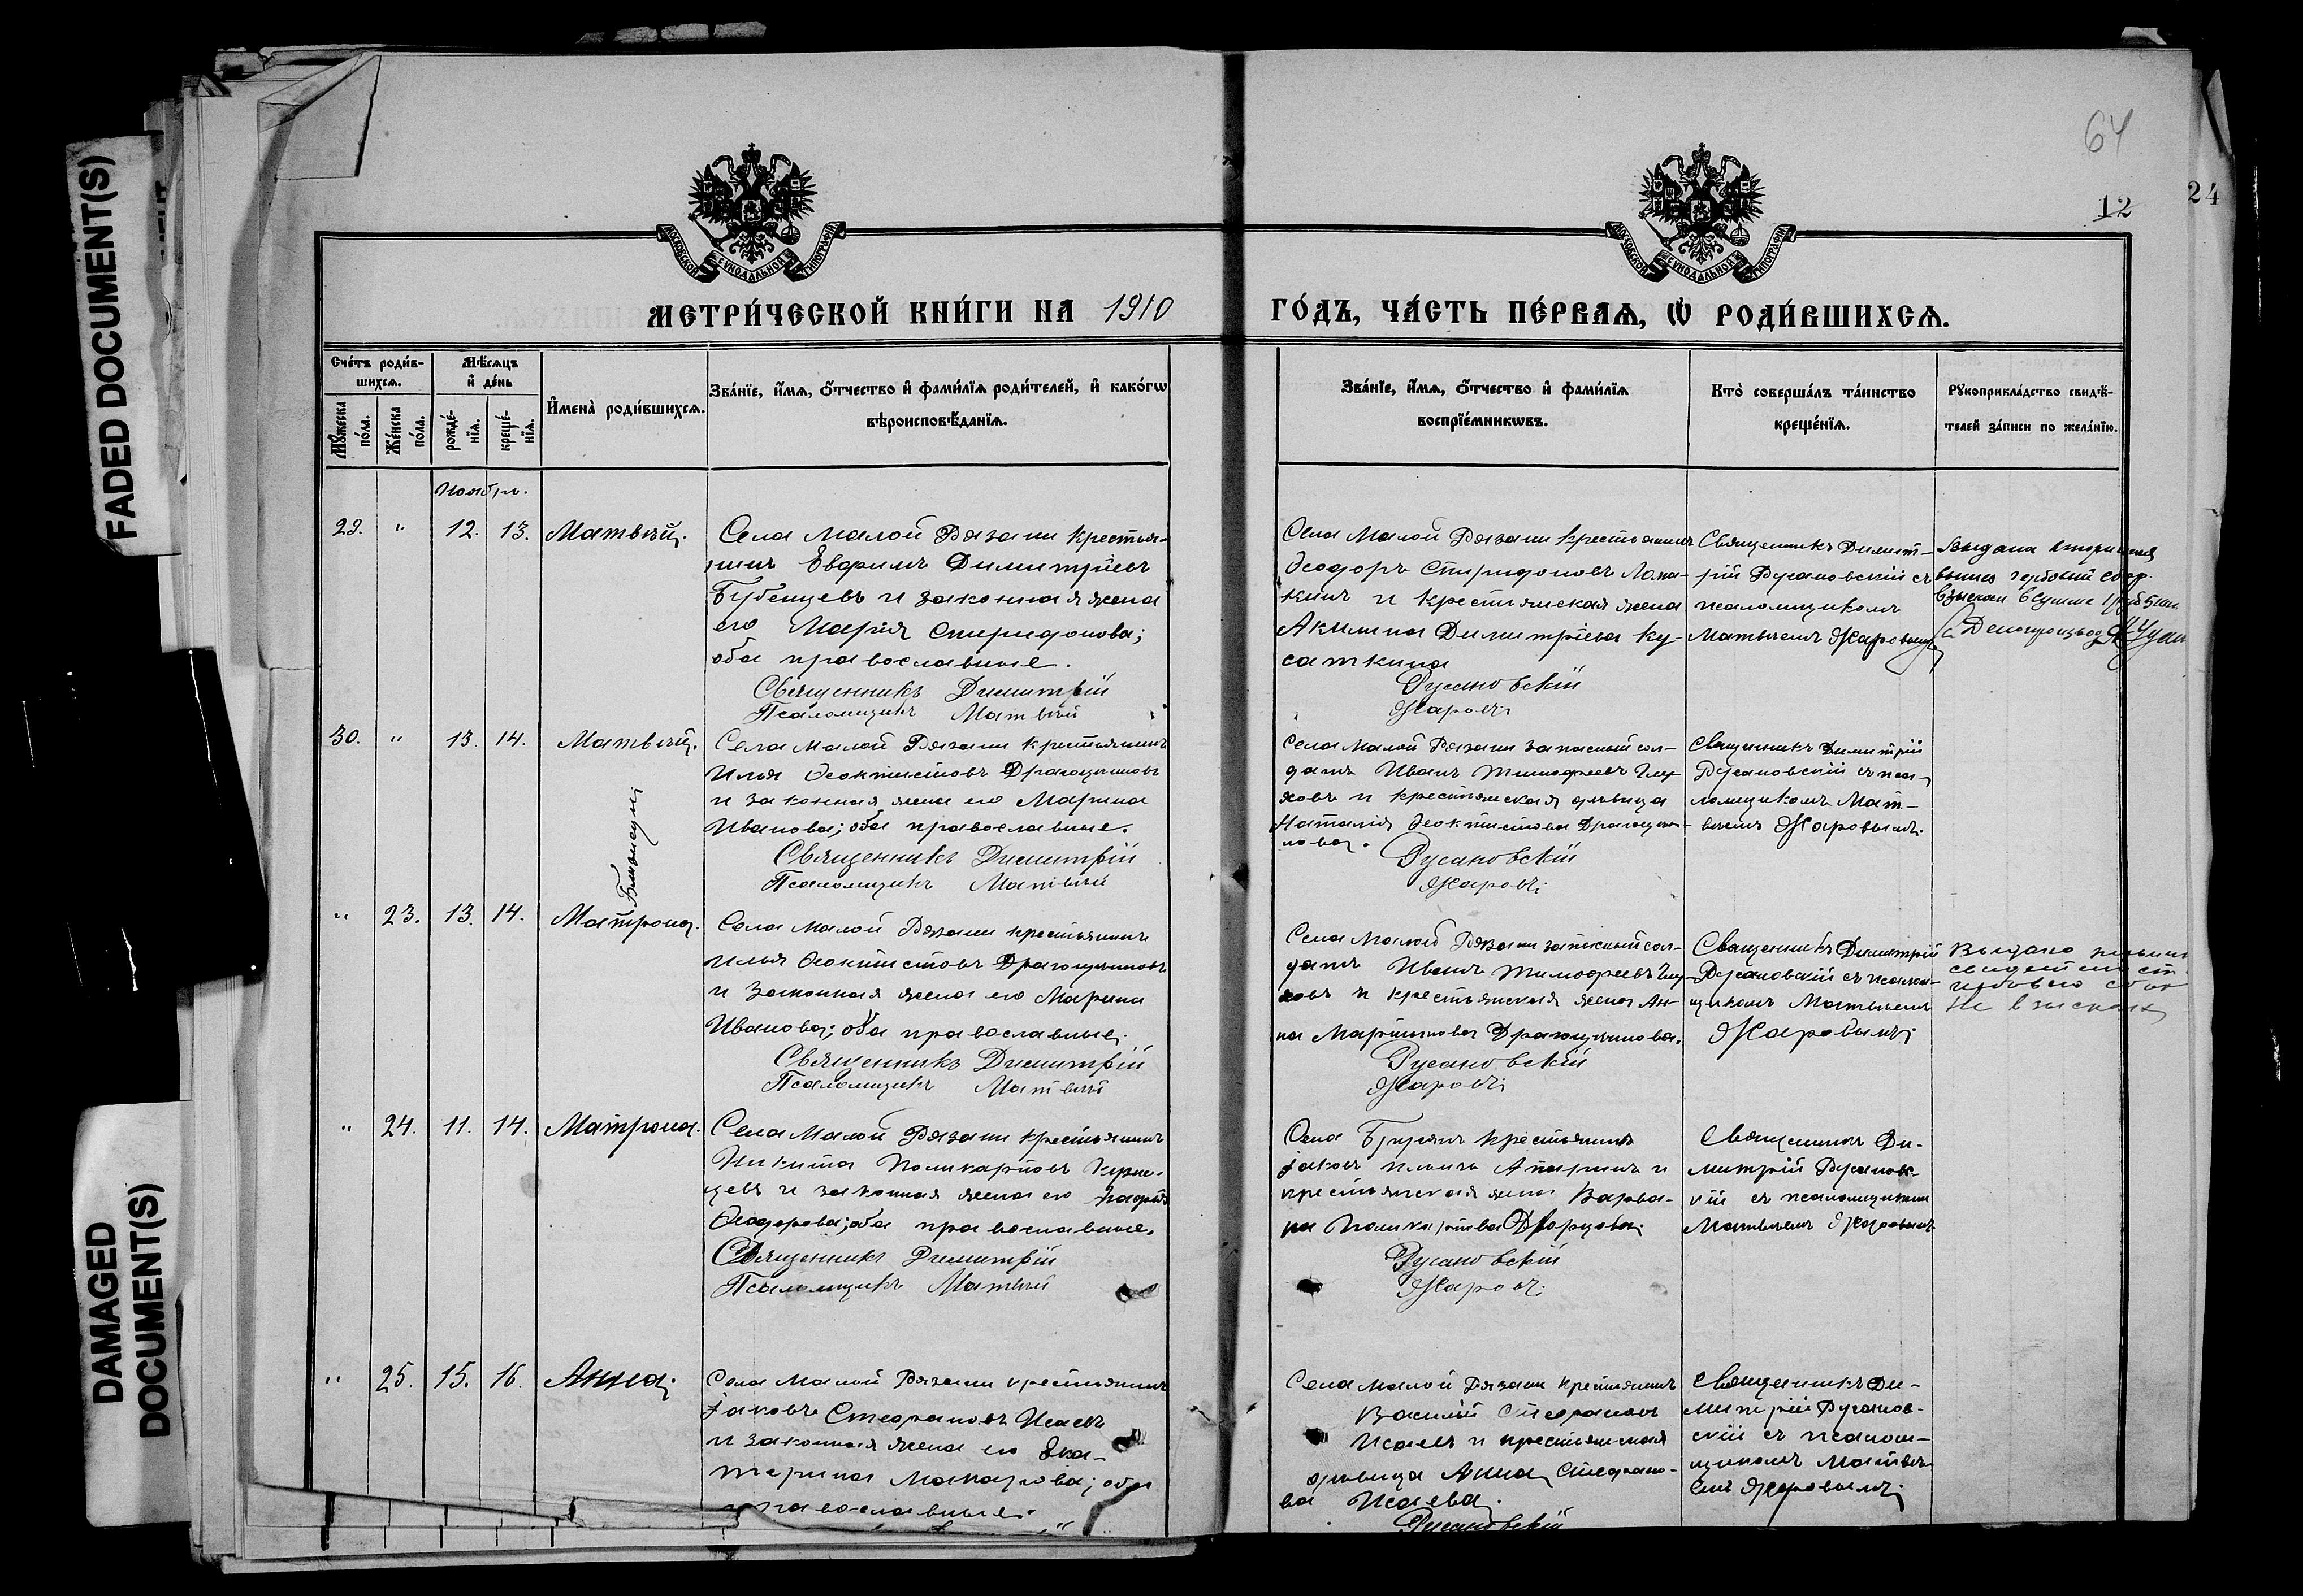 FADED DOCUMENT(S)
DAMAGED
DOCUMENT(S)
64
12
24
МОСКОВСКОЙ СУНОДАЛЬНОЙ ТИПОГРАФІИ
МОСКОВСКОЙ СУНОДАЛЬНОЙ ТИПОГРАФІИ
МЕТРИ́ЧЕСКОЙ КНИ́ГИ НА 1910
ГО́ДЪ, ЧА́СТЬ ПЕ́РВАѦ, Ѡ РОДИ́ВШИХСѦ.
Сче́тъ роди́в-
шихсѧ.
Мꙋ́жеска
по́ла.
Же́нска
по́ла.
Мѣ́сѧцъ
и҆ де́нь
рожде́-
нїѧ.
креще́-
нїѧ.
И҆мена̀ роди́вшихсѧ.
Зва́нїе, и҆́мѧ, ѻ҆́тчество и҆ фами́лїѧ роди́телей, и҆ како́гѡ
вѣроисповѣ́данїѧ.
Зва́нїе, и҆́мѧ, ѻ҆́тчество и҆ фами́лїѧ
воспрїе́мникѡвъ.
Кто̀ соверша́лъ та́инство
креще́нїѧ.
Рꙋкоприкла́дство свидѣ́-
телей за́писи по жела́нїю.
Ноябрь.
29. " 12. 13. Матвѣй.
Села Малой Рязани крестья-
нинъ Евфимъ Димитріевъ
Бубенцевъ и законная жена
его Марія Спиридонова;
оба православные.
Священникъ Димитрій
Псаломщикъ Матвѣй
Села Малой Рязани крестьянинъ
Ѳеодоръ Спиридоновъ Лопа-
кинъ и крестьянская жена
Акилина Димитріева Ку-
саткина
Русановскій
Жаровъ
Священникъ Димит-
рій Русановскій съ
псаломщикомъ
Матвѣемъ Жаровымъ
Выдана вторичная
30. " 13. 14. Матвѣй.
Близнецы
Села Малой Рязани крестьянинъ
Илья Ѳеоктистовъ Драгоцѣновъ
и законная жена его Марина
Иванова; оба православные.
Священникъ Димитрій
Псаломщикъ Матвѣй
Села Малой Рязани запасный сол-
датъ Иванъ Тимофеевъ Глу-
ховъ и крестьянская дѣвица
Наталія Ѳеоктистова Драгоцѣ-
нова.
Русановскій
Жаровъ
Священникъ Димитрій
Русановскій съ пса-
ломщикомъ Мат-
вѣемъ Жаровымъ.
" 23. 13. 14. Матрона.
Села Малой Рязани крестьянинъ
Илья Ѳеоктистовъ Драгоцѣновъ
и законная жена его Марина
Иванова; оба православные.
Священникъ Димитрій
Псаломщикъ Матвѣй
Села Малой Рязани запасный сол-
датъ Иванъ Тимофеевъ Глу-
ховъ и крестьянская жена Ан-
на Мартынова Драгоцѣнова.
Русановскій
Жаровъ
Священникъ Димитрій
Русановскій съ псалом-
щикомъ Матвѣемъ
Жаровымъ
Выдано
Не взыскан
" 24. 11. 14. Матрона.
Села Малой Рязани крестьянинъ
Никита Поликарповъ
и законная жена его
Ѳеодорова; оба православные.
Священникъ Димитрій
Псаломщикъ Матвѣй
Села крестьянинъ
Іаковъ Ильинъ и
крестьянская жена Варва-
ра Поликарпова Дворцова.
Русановскій
Жаровъ
Священникъ Ди-
митрій Русановс-
кій съ псаломщикомъ
Матвѣемъ Жаровымъ
" 25. 15. 16. Анна.
Села Малой Рязани крестьянинъ
Іаковъ Стефановъ Исаевъ
и законная жена его Ека-
терина Макарова; оба
православные.
Села Малой Рязани крестьянинъ
Василій Стефановъ
Исаевъ и крестьянская
дѣвица Анна Стефано-
ва Исаева.
Русановскій
Священникъ Ди-
митрій Русанов-
скій съ псалом-
щикомъ Матвѣ-
емъ Жаровымъ